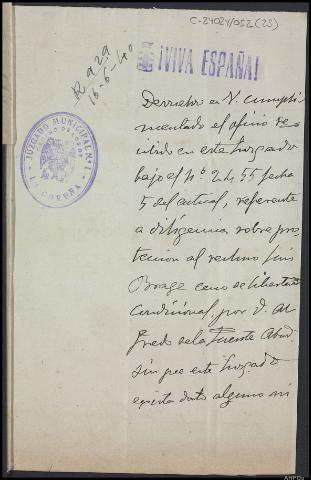 C-24024/052 (25)
R 929
16-6-40
¡VIVA ESPAÑA!
JUZGADO MUNICIPAL Nº 1
LA CORUÑA
Devuelvo a V. cumpli-
mentado el oficio re-
cibido en este Juzgado
bajo el nº 2455 fecha
5 del actual, referente
a diligencia sobre pro-
tección al recluso Luis
Borge caso de libertad
condicional, por D. Al
fredo de la Fuente Abad
sin que este Juzgado
exista dato alguno ni